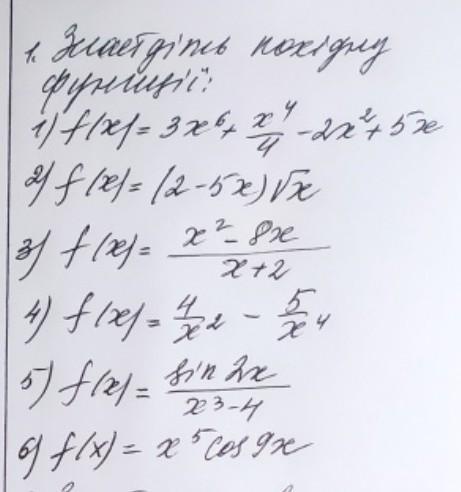 1. Знайдіть похідну
функції:
1) f(x) = 3x⁶ + x⁴/4 - 2x² + 5x
2) f(x) = (2 - 5x)√x
3) f(x) = (x² - 8x)/(x + 2)
4) f(x) = 4/x² - 5/x⁴
5) f(x) = sin 2x/(x³ - 4)
6) f(x) = x⁵ cos 9x